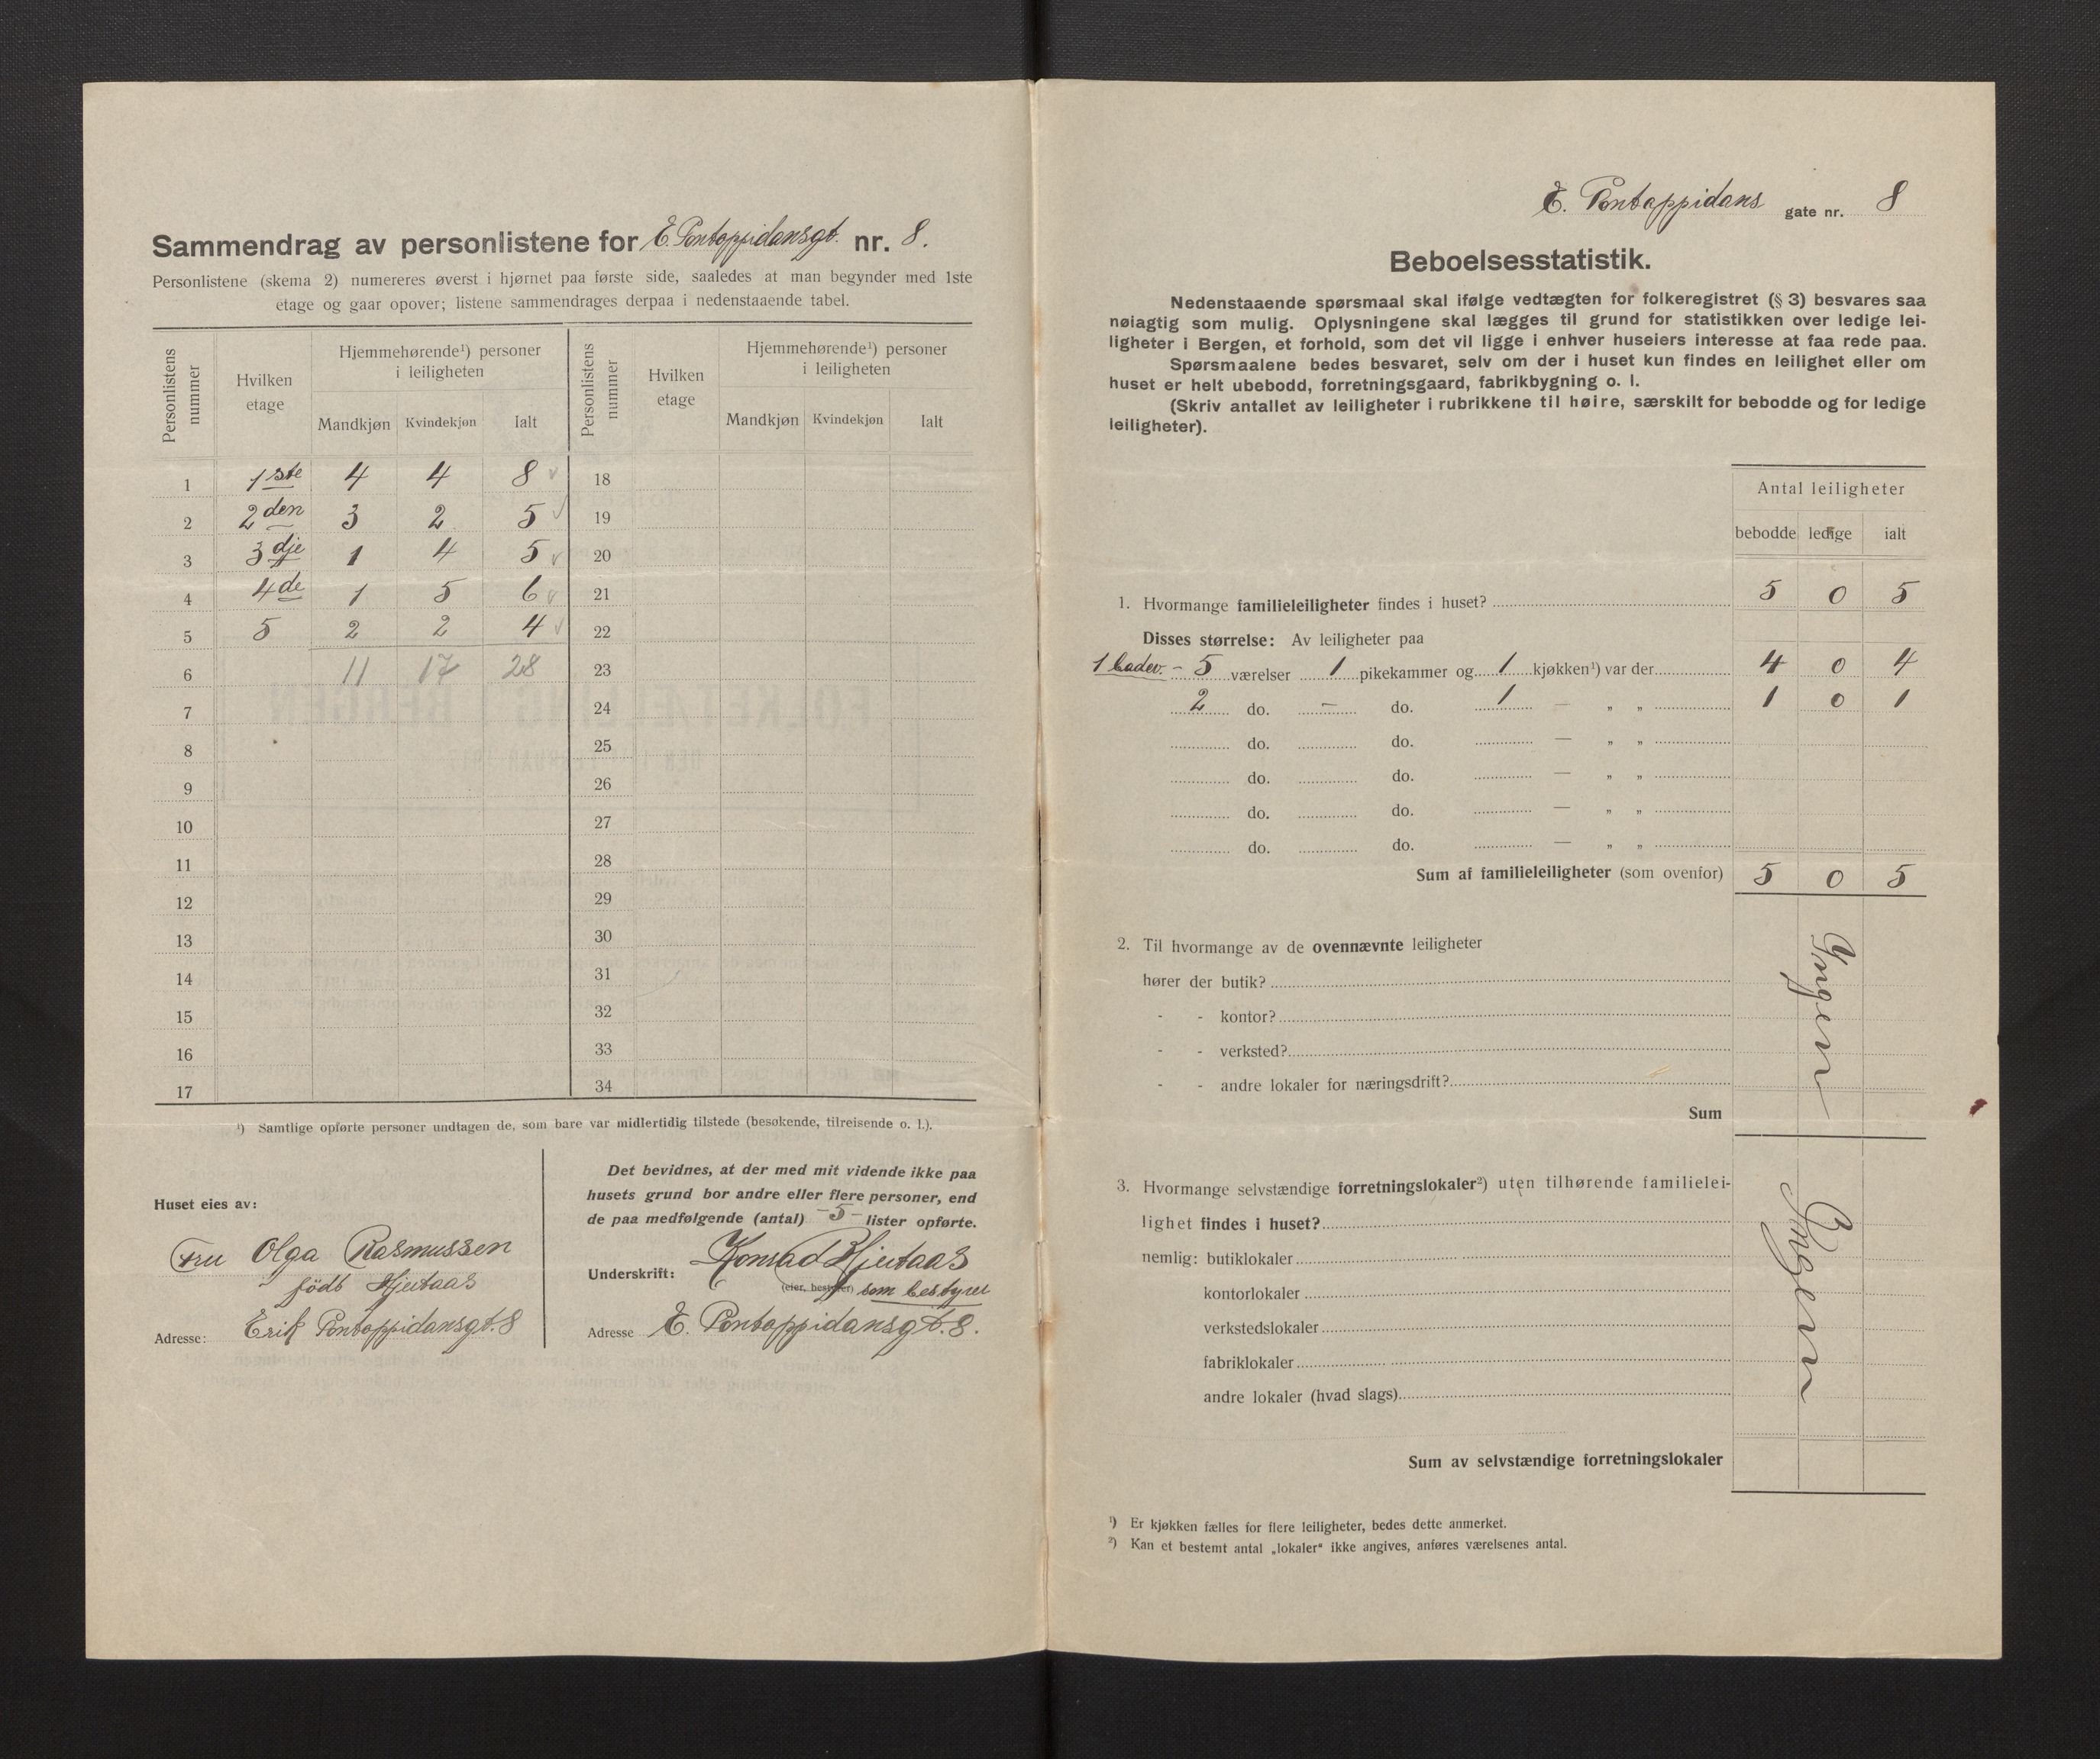 Sammendrag av personlistene for E. Pontoppidansgt. nr. 8.
Personlistene (skema 2) numereres øverst i hjørnet paa første side, saaledes at man begynder med 1ste
etage og gaar opover; listene sammendrages derpaa i nedenstaaende tabel.
Personlistens nummer | Hvilken etage | Hjemmehørende¹) personer i leiligheten | Personlistens nummer | Hvilken etage | Hjemmehørende¹) personer i leiligheten
Mandkjøn | Kvindekjøn | Ialt | Mandkjøn | Kvindekjøn | Ialt
1 | 1ste | 4 | 4 | 8 | 18
2 | 2den | 3 | 2 | 5 | 19
3 | 3dje | 1 | 4 | 5 | 20
4 | 4de | 1 | 5 | 6 | 21
5 | 5 | 2 | 2 | 4 | 22
6 | 11 | 17 | 28 | 23
7 | 24
8 | 25
9 | 26
10 | 27
11 | 28
12 | 29
13 | 30
14 | 31
15 | 32
16 | 33
17 | 34
¹) Samtlige opførte personer undtagen de, som bare var midlertidig tilstede (besøkende, tilreisende o. l.).
Huset eies av:
Fru Olga Rasmussen
født Hjertaas
Adresse: Erik Pontoppidansgt. 8
Det bevidnes, at der med mit vidende ikke paa
husets grund bor andre eller flere personer, end
de paa medfølgende (antal) -5- lister opførte.
Underskrift: Konrad Hjertaas
(eier, bestyrer) som bestyrer
Adresse E. Pontoppidansgt. 8.
E. Pontoppidans gate nr. 8
Beboelsesstatistik.
Nedenstaaende spørsmaal skal ifølge vedtægten for folkeregistret (§ 3) besvares saa
nøiagtig som mulig. Oplysningene skal lægges til grund for statistikken over ledige lei-
ligheter i Bergen, et forhold, som det vil ligge i enhver huseiers interesse at faa rede paa.
Spørsmaalene bedes besvaret, selv om der i huset kun findes en leilighet eller om
huset er helt ubebodd, forretningsgaard, fabrikbygning o. l.
(Skriv antallet av leiligheter i rubrikkene til høire, særskilt for bebodde og for ledige
leiligheter).
Antal leiligheter
bebodde | ledige | ialt
1. Hvormange familieleiligheter findes i huset? 5 | 0 | 5
Disses størrelse: Av leiligheter paa
1 badev. - 5 værelser 1 pikekammer og 1 kjøkken¹) var der 4 | 0 | 4
2 do. — do. 1 — „ „ 1 | 0 | 1
do. do. — „ „
do. do. — „ „
do. do. — „ „
do. do. — „ „
Sum af familieleiligheter (som ovenfor) 5 | 0 | 5
2. Til hvormange av de ovennævnte leiligheter
hører der butik?
- - kontor?
- - verksted?
- - andre lokaler for næringsdrift?
Sum
Ingen
3. Hvormange selvstændige forretningslokaler²) uten tilhørende familielei-
lighet findes i huset?
nemlig: butiklokaler
kontorlokaler
verkstedslokaler
fabriklokaler
andre lokaler (hvad slags)
Ingen
Sum av selvstændige forretningslokaler
¹) Er kjøkken fælles for flere leiligheter, bedes dette anmerket.
²) Kan et bestemt antal „lokaler“ ikke angives, anføres værelsenes antal.